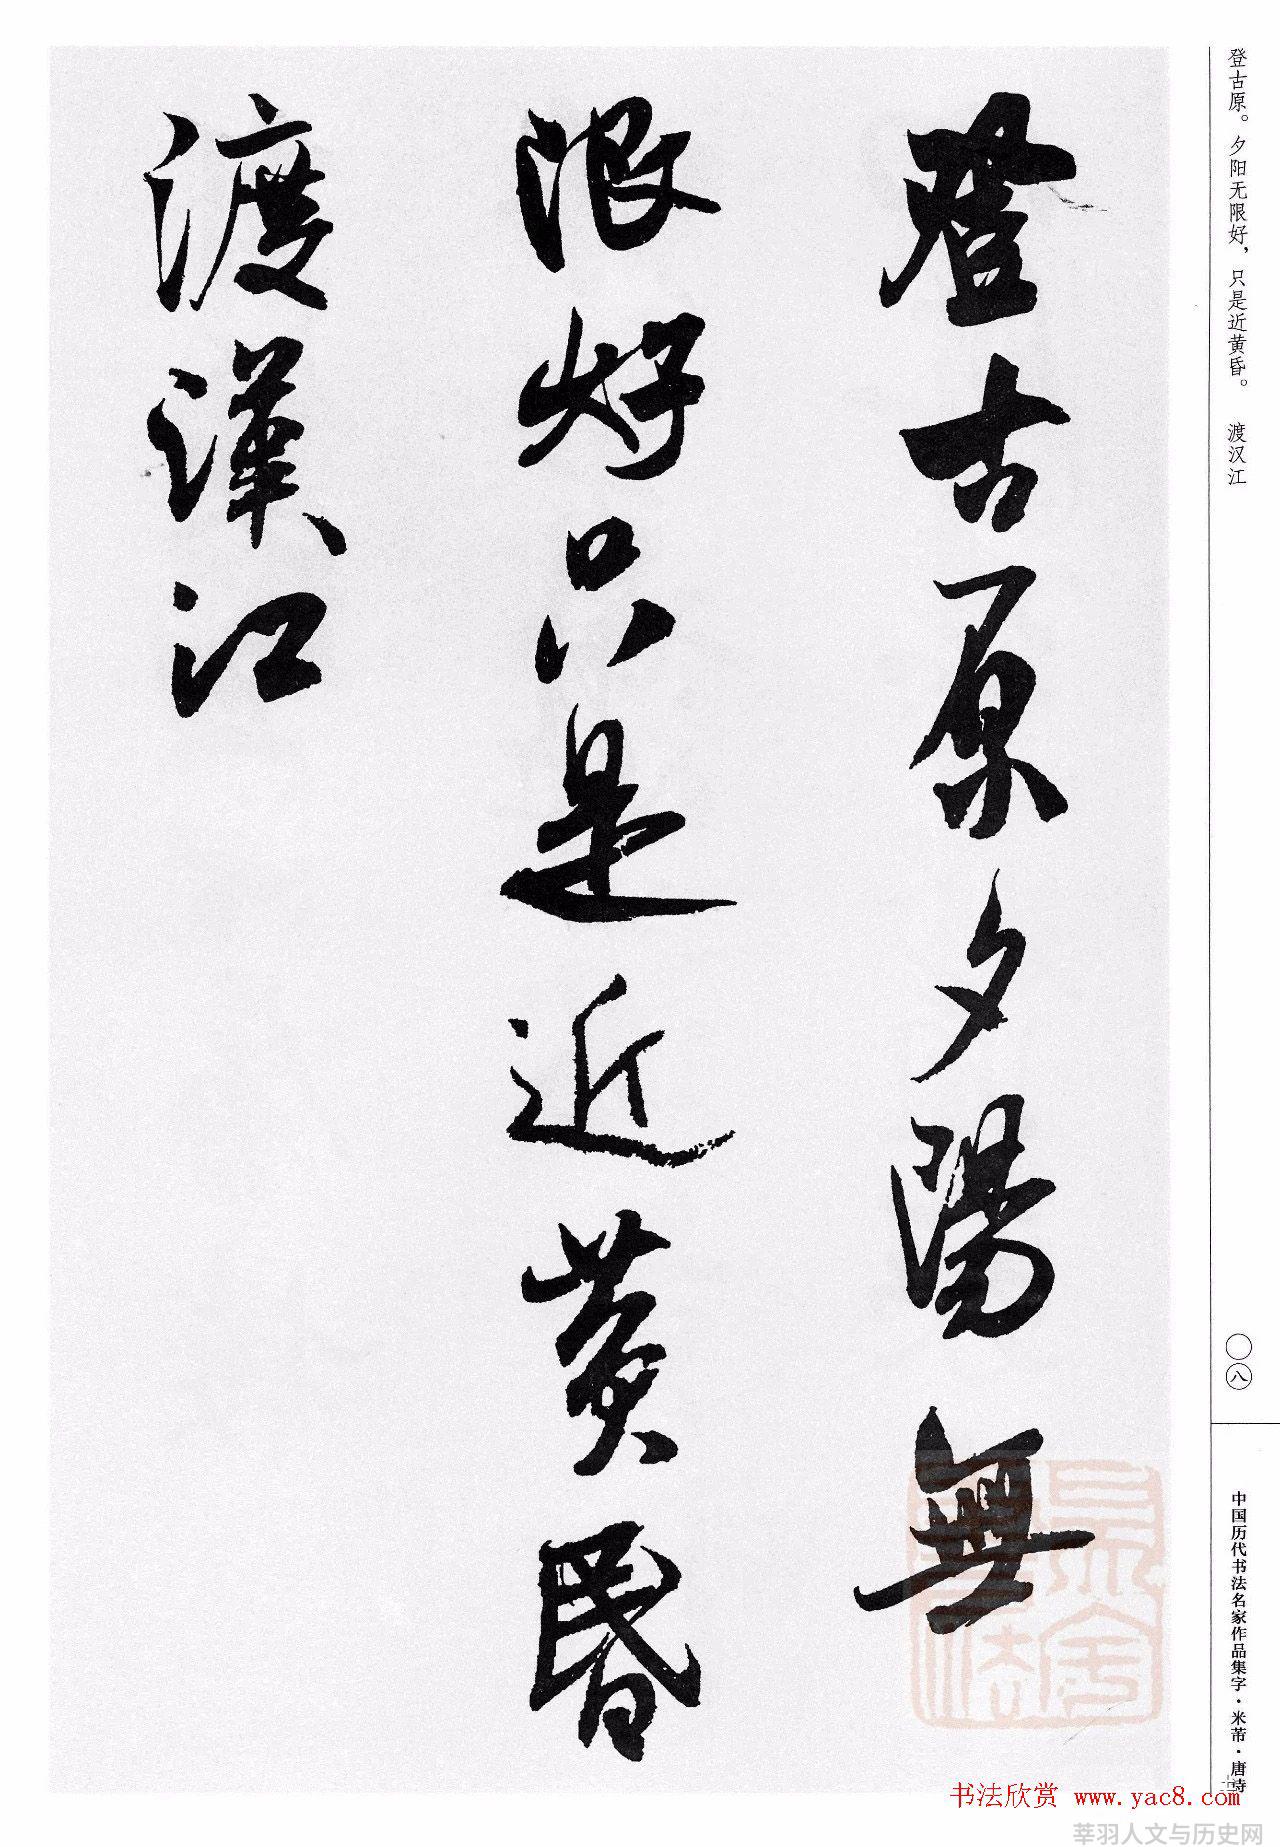 登古原。夕阳无限好，只是近黄昏。　渡汉江
登古原夕陽無
限好只是近黄昏
渡漢江
〇八
中国历代书法名家作品集字·米芾·唐诗
书法欣赏 www.yac8.com
莘羽人文与历史网